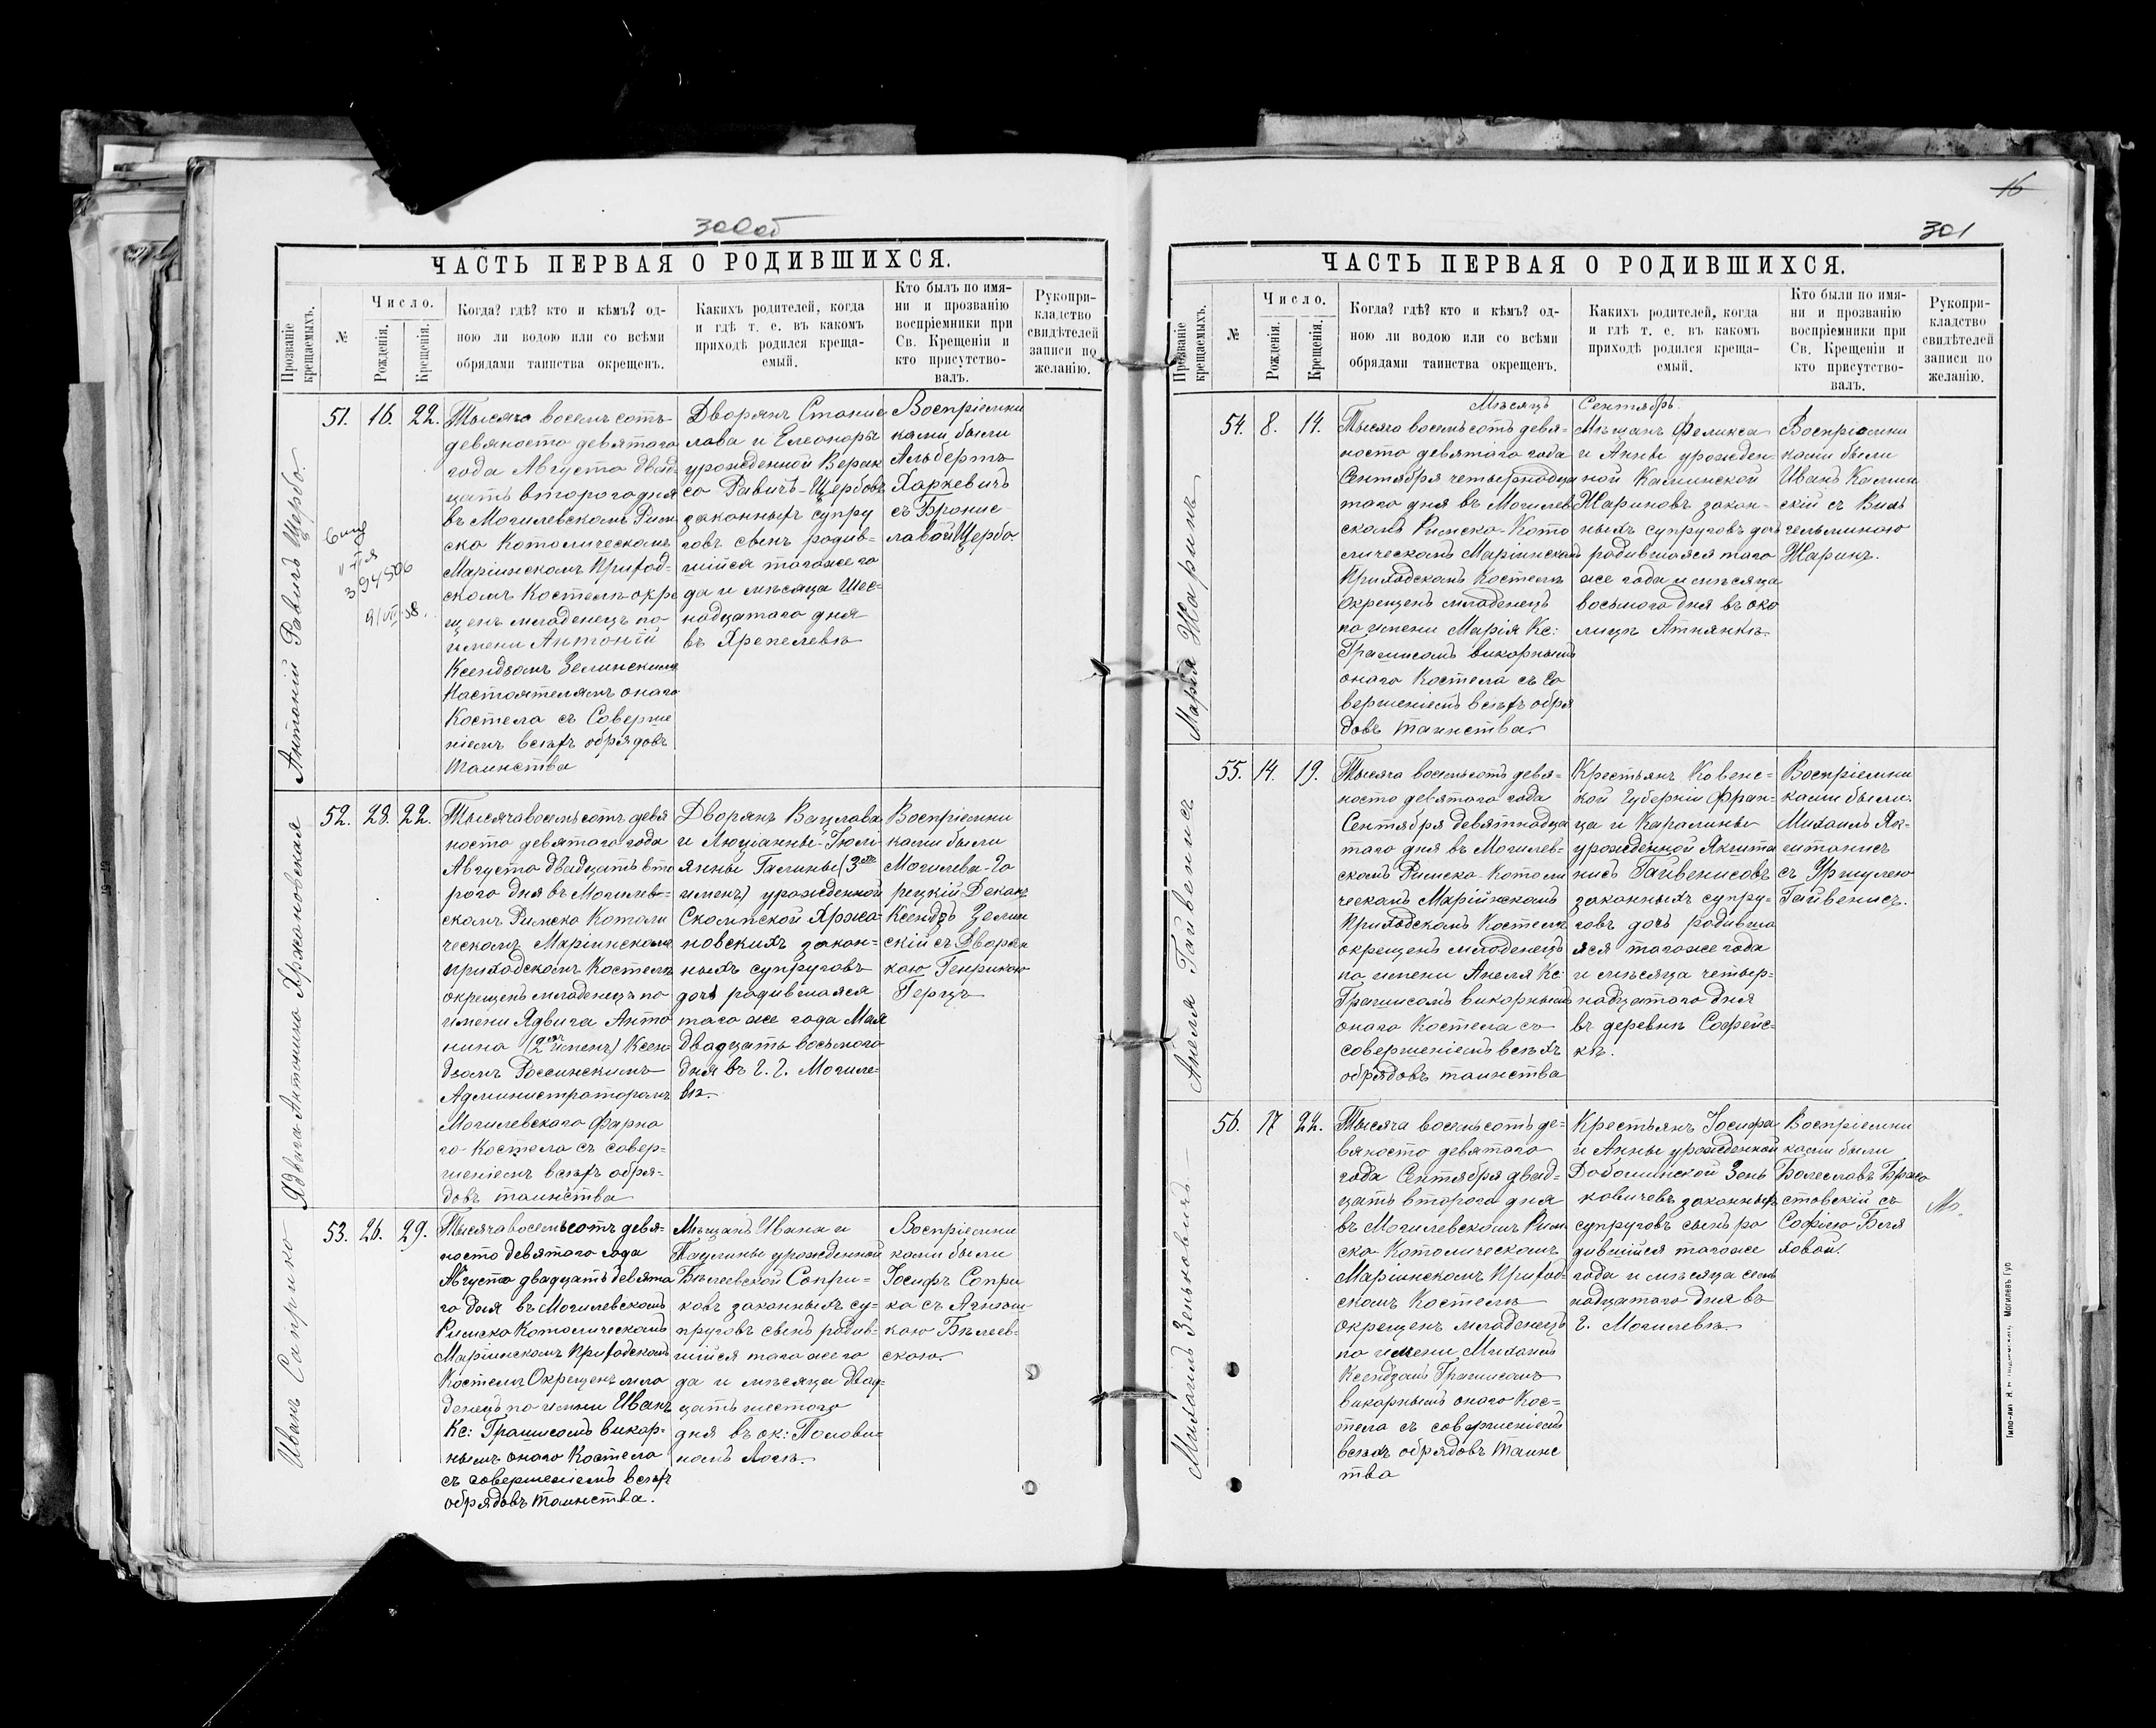 300об
ЧАСТЬ ПЕРВАЯ О РОДИВШИХСЯ.
Прозваніе крещаемыхъ.
№
Число.
Рожденія.
Крещенія.
Когда? гдѣ? кто и кѣмъ? од-
ною ли водою или со всѣми
обрядами таинства окрещенъ.
Какихъ родителей, когда
и гдѣ т. е. въ какомъ
приходѣ родился креща-
емый.
Кто былъ по имя-
ни и прозванію
воспріемники при
Св. Крещеніи и
кто присутство-
валъ.
Рукопри-
кладство
свидѣтелей
записи по
желанію.
Антоній Равичъ Щербо
51. 16. 22.
394506
Тысяча восемь сотъ
девяносто девятаго
года Августа двад-
цать втораго дня
въ Могилевскомъ Рим
ско Католическомъ
Маріинскомъ Приход-
скомъ Костелѣ окре
щенъ младенецъ по
имени Антоній
Ксендзомъ Зелинскимъ
Настоятелемъ онаго
Костела съ Соверше
ніемъ всѣхъ обрядовъ
Таинства
Дворянъ Станис
лава и Елеоноры
урожденной Верак
са Равичъ-Щербовъ
законныхъ супру
говъ сынъ родив-
шійся тогоже го
да и мѣсяца Шес-
надцатаго дня
въ Хрепелевѣ
Воспріемни
ками были
Альбертъ
Харкевичъ
съ Бронис-
лавой Щербо.
Ядвига Антонина Яржановская
52. 28. 22.
Тысяча восемьсотъ девя
носто девятаго года
Августа двадцать вто
раго дня въ Могилев-
скомъ Римско Катали
ческомъ Маріинскомъ
приходскомъ Костелѣ
окрещенъ младенецъ по
имени Ядвига Анто
нина (2 именъ) Ксен-
дзомъ Россинскимъ
Администраторомъ
Могилевскаго Фарна
го Костела съ совер-
шеніемъ всѣхъ обря-
довъ таинства
Дворянъ Вацлава
и Люціанны-Юлі
янны Галины (3
именъ) урожденной
Скомпской Яржа-
новскихъ закон-
ныхъ супруговъ
дочь родившаяся
того же года Мая
двадцать восьмого
дня въ г. г. Могиле-
вѣ.
Воспріемни
ками были
Могилево-Го
рецкій Деканъ
Ксендзъ Зелин
скій съ Дворян
кою Генрикою
Герцъ
Иванъ Саприко
53. 26. 29.
Тысяча восемьсотъ девя-
носто девятаго года
Августа двадцать девята
го дня въ Могилевскомъ
Римско Католическомъ
Маріинскомъ Приходскомъ
Костелѣ Окрещенъ мла
денецъ по имени Иванъ
Кс: Грашисомъ викар-
нымъ онаго Костела
съ совершеніемъ всѣхъ
обрядовъ таинства.
Мѣщанъ Ивана и
Паулины урожденной
Бѣлевской Сопри-
ковъ законныхъ су-
пруговъ сынъ родив-
шійся того же го
да и мѣсяца двад-
цать шестого
дня въ ок: Полови-
номъ Логѣ.
Воспріемни
ками были
Іосифъ Сопри
ко съ Агнѣш-
кою Бѣлев-
скою.
16
301
ЧАСТЬ ПЕРВАЯ О РОДИВШИХСЯ.
Прозваніе крещаемыхъ.
№
Число.
Рожденія.
Крещенія.
Когда? гдѣ? кто и кѣмъ? од-
ною ли водою или со всѣми
обрядами таинства окрещенъ.
Какихъ родителей, когда
и гдѣ т. е. въ какомъ
приходѣ родился креща-
емый.
Кто были по имя-
ни и прозванію
воспріемники при
Св. Крещеніи и
кто присутство-
валъ.
Рукопри-
кладство
свидѣтелей
записи по
желанію.
Мѣсяцъ Сентябрь.
Марія Жаринъ
54. 8. 14.
Тысяча восемьсотъ девя-
носто девятаго года
Сентября четырнадца
таго дня въ Могилев
скомъ Римско-Като
лическомъ Маріинскомъ
Приходскомъ Костелѣ
Окрещенъ младенецъ
по имени Марія Кс:
Грашисомъ викарнымъ
онаго Костела съ Со
вершеніемъ всѣхъ обря
довъ таинства.
Мѣщанъ Феликса
и Анны урожден-
ной Калинской
Жариновъ закон-
ныхъ супруговъ дочь
родившаяся того
же года и мѣсяца
восьмого дня въ око
лицѣ Атнянкѣ.
Воспріемни
ками были
Иванъ Калин
скій съ Виль
гельминою
Жаринъ.
Анеля Гайвенисъ
55. 14. 19.
Тысяча восемьсотъ девя-
носто девятаго года
Сентября девятнадца
таго дня въ Могилев-
скомъ Римско-Катали
ческомъ Маріинскомъ
Приходскомъ Костелѣ
окрещенъ младенецъ
по имени Анеля Кс:
Грашисомъ викарнымъ
онаго Костела съ
совершеніемъ всѣхъ
обрядовъ таинства
Крестьянъ Ковенс-
кой Губерніи Фран-
ца и Каралины
урожденной Якшта
нисъ Гайвенисовъ
законныхъ супру-
говъ дочь родивша
яся тогоже года
и мѣсяца четыр-
надцатаго дня
въ деревнѣ Софейс-
кѣ.
Воспріемни
ками были.
Михаилъ Як-
штанисъ
съ Уршулею
Гайвенисъ.
Михаилъ Зеньковичъ
56. 17 22.
Тысяча восемьсотъ де-
вяносто девятаго
года Сентября двад-
цать втораго дня
въ Могилевскомъ Рим
ско-Католическомъ
Маріинскомъ Приход-
скомъ Костелѣ
окрещенъ младенецъ
по имени Михаилъ
Ксендзомъ Грашисомъ
викарнымъ онаго Кос-
тела съ совершеніемъ
всѣхъ обрядовъ таинс
тва
Крестьянъ Іосифа
и Анны урожденной
Доболинской Зень
ковичевъ законныхъ
супруговъ сынъ ро
дившійся тогоже
года и мѣсяца семь
надцатаго дня въ
г. Могилевѣ.
Воспріемни
ками были
Болеславъ Бржо
стовскій съ
Софіею Бѣля
ховой.